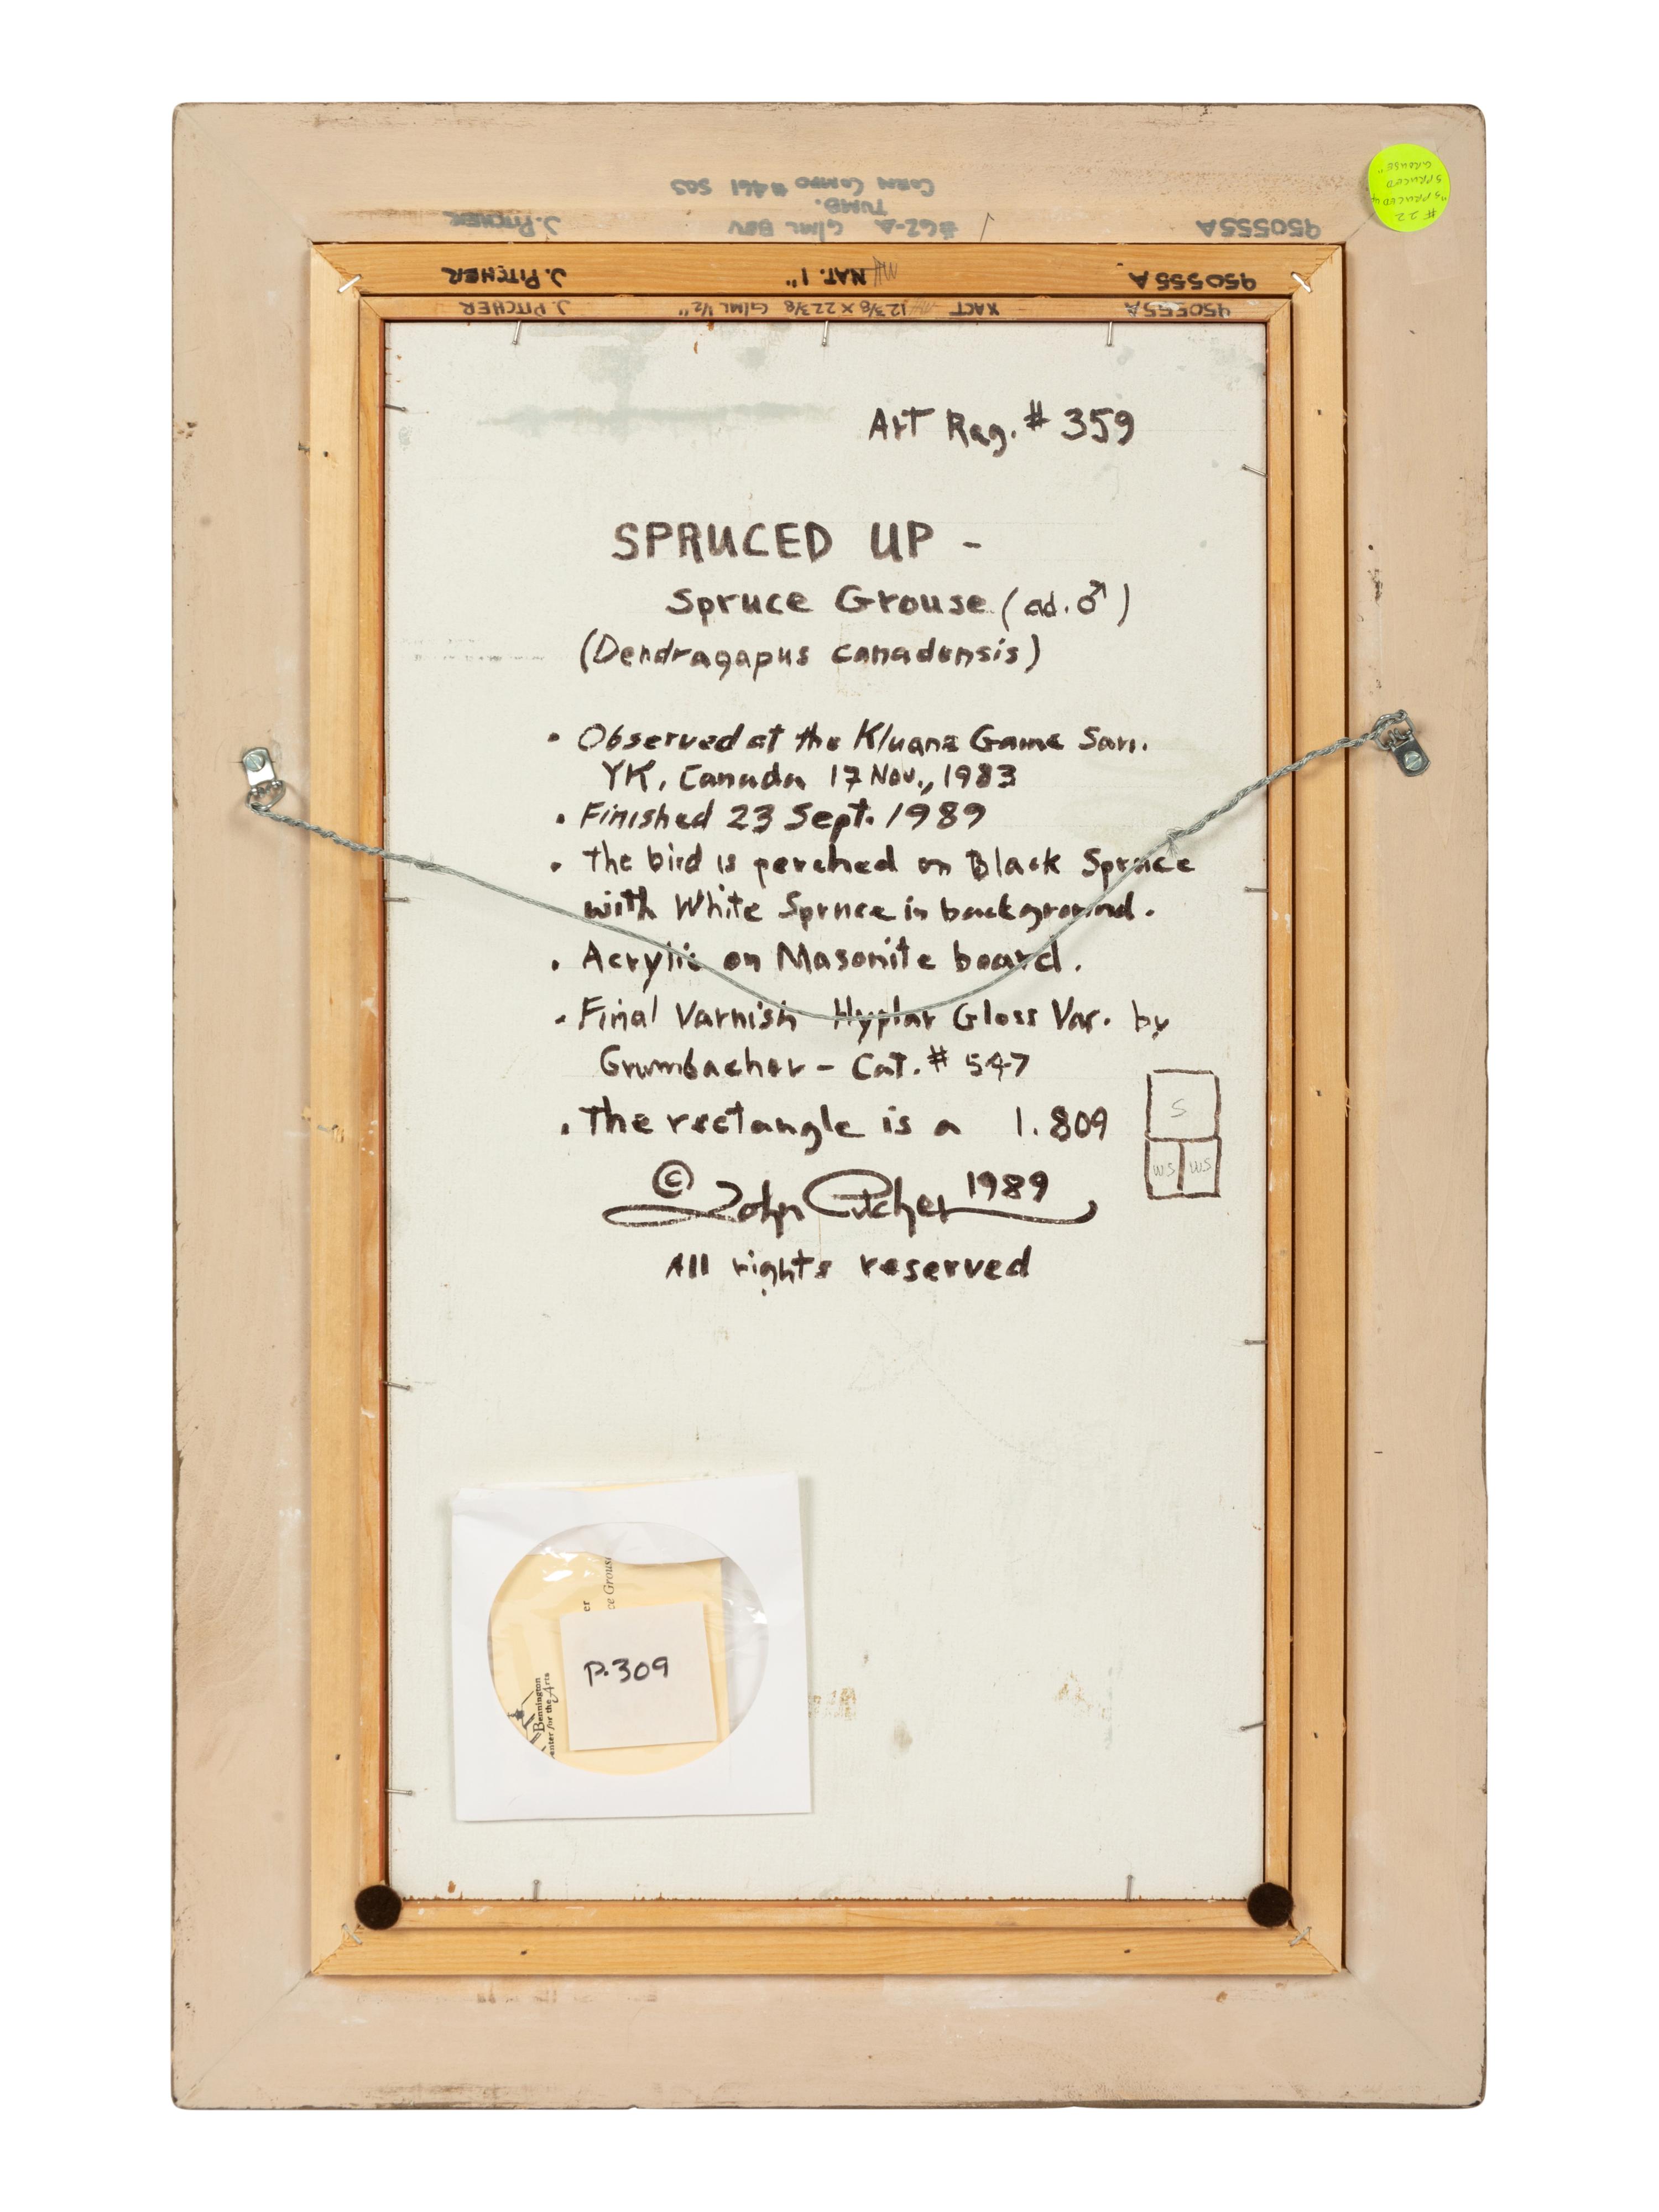 CORN COMPO #461 SGS
TUMB.
950555A
#62-A G/ML BOV
J. PITCHER
950555A
NAT. 1"
J. PITCHER
950555A
XACT 12 3/8 X 22 3/8 G/ML 1/2"
J. PITCHER
#22
"SPRUCED UP
SPRUCED
GROUSE"
Art Reg. # 359
SPRUCED UP -
Spruce Grouse (ad. ♂)
(Dendragapus canadensis)
• Observed at the Kluane Game San.
YK, Canada 17 Nov., 1983
• Finished 23 Sept. 1989
• The bird is perched on Black Spruce
with White Spruce in background.
• Acrylic on Masonite board.
• Final Varnish Hyplar Gloss Var. by
Grumbacher - Cat. # 547
• The rectangle is a 1.809
S
WS WS
© John Pitcher 1989
All rights reserved
er
ce Grouse
P.309
Bennington
enter for the Arts